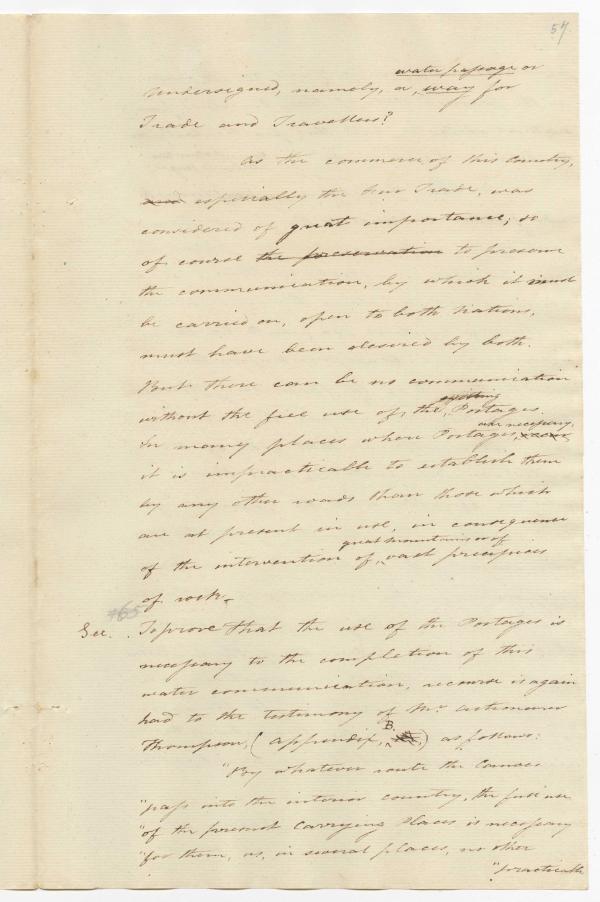 57.
water passage or
Undersigned, namely, a, way for
Trade and Travellers?
As the commerce of this Country,
and especially the Fur Trade, was
considered of great importance, so
of course the preservation to preserve
the communication, by which it must
be carried on, open to both Nations,
must have been desired by both.
But there can be no communication
existing
without the free use of, the, Portages.
are necessary
In many places where Portages, occur,
it is impracticable to establish them
by any other roads than those which
are at present in use, in consequence
great mountains or of
of the intervention of, vast precipices
of rock.
465
See. To prove that the use of the Portages is
necessary to the completion of this
water communication, recourse is again
had to the testimony of Mr. Astronomer
B.
Thompson, (Appendix, ) as follows:
"By whatever route the Canoes
"pass into the interior country, the full use
"of the present Carrying Places is necessary
"for them, as, in several places, no other
"practicable